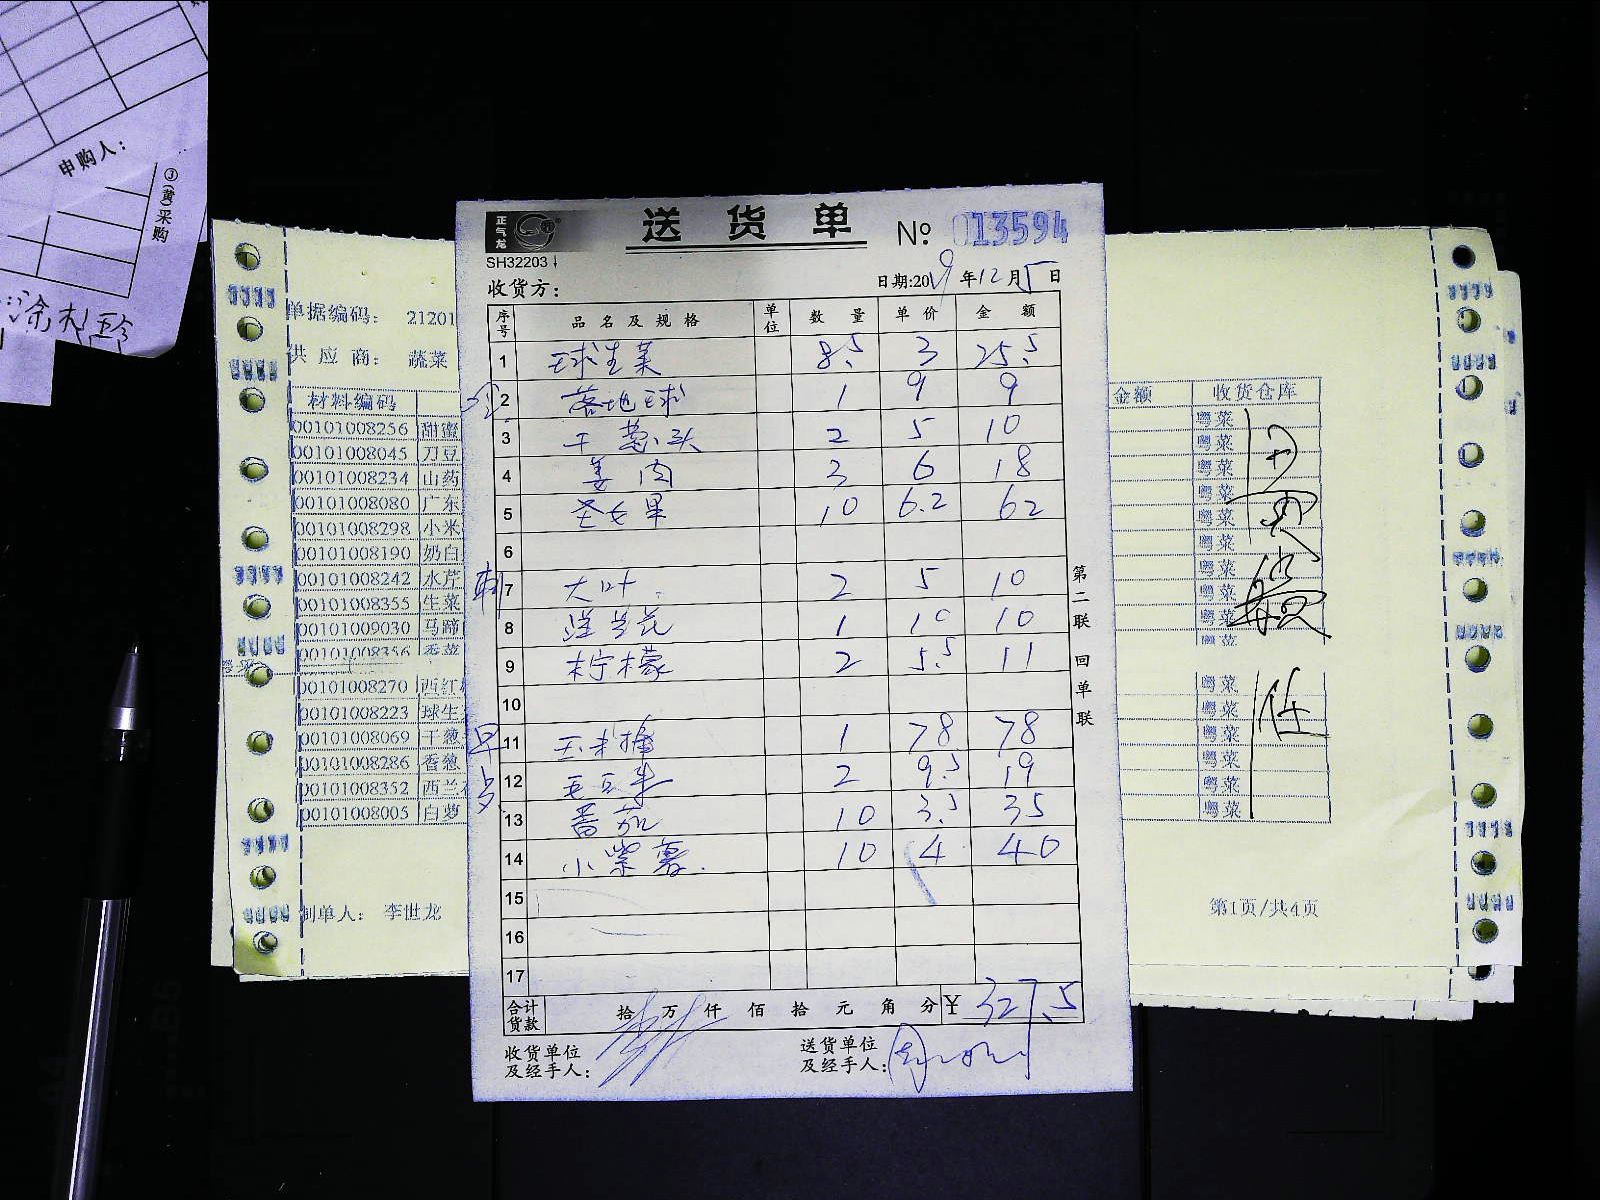 申购人：
③(黄)采购
正气龙
送货单
№ 013594
SH32203
收货方：
日期:2019年12月5日
序号 品名及规格 单位 数量 单价 金额
1 王球生菜 8.5 3 25.5
2 落地球 1 9 9
3 干葱头 2 5 10
4 姜肉 3 6 18
5 圣女果 10 6.2 62
6
7 大叶 2 5 10
8 西兰花 1 10 10
9 柠檬 2 5.5 11
10
11 玉米棒 1 78 78
12 毛豆米 2 9.5 19
13 番茄 10 3.5 35
14 小紫薯 10 4 40
15
16
17
合计货款 拾万仟佰拾元角分 ¥ 327.5
收货单位及经手人：
送货单位及经手人：
第二联 回单联
单据编码： 21201
供应商： 蔬菜
材料编码
00101008256 甜蜜
00101008045 刀豆
00101008234 山药
00101008080 广东
00101008298 小米
00101008190 奶白
00101008242 水芹
00101008355 生菜
00101009030 马蹄
00101008356 香菜
00101008270 西红
00101008223 球生
00101008069 干葱
00101008286 香葱
00101008352 西兰
00101008005 白萝
制单人： 李世龙
金额 收货仓库
粤菜
粤菜
粤菜
粤菜
粤菜
粤菜
粤菜
粤菜
粤菜
粤菜
粤菜
粤菜
粤菜
粤菜
粤菜
第1页/共4页